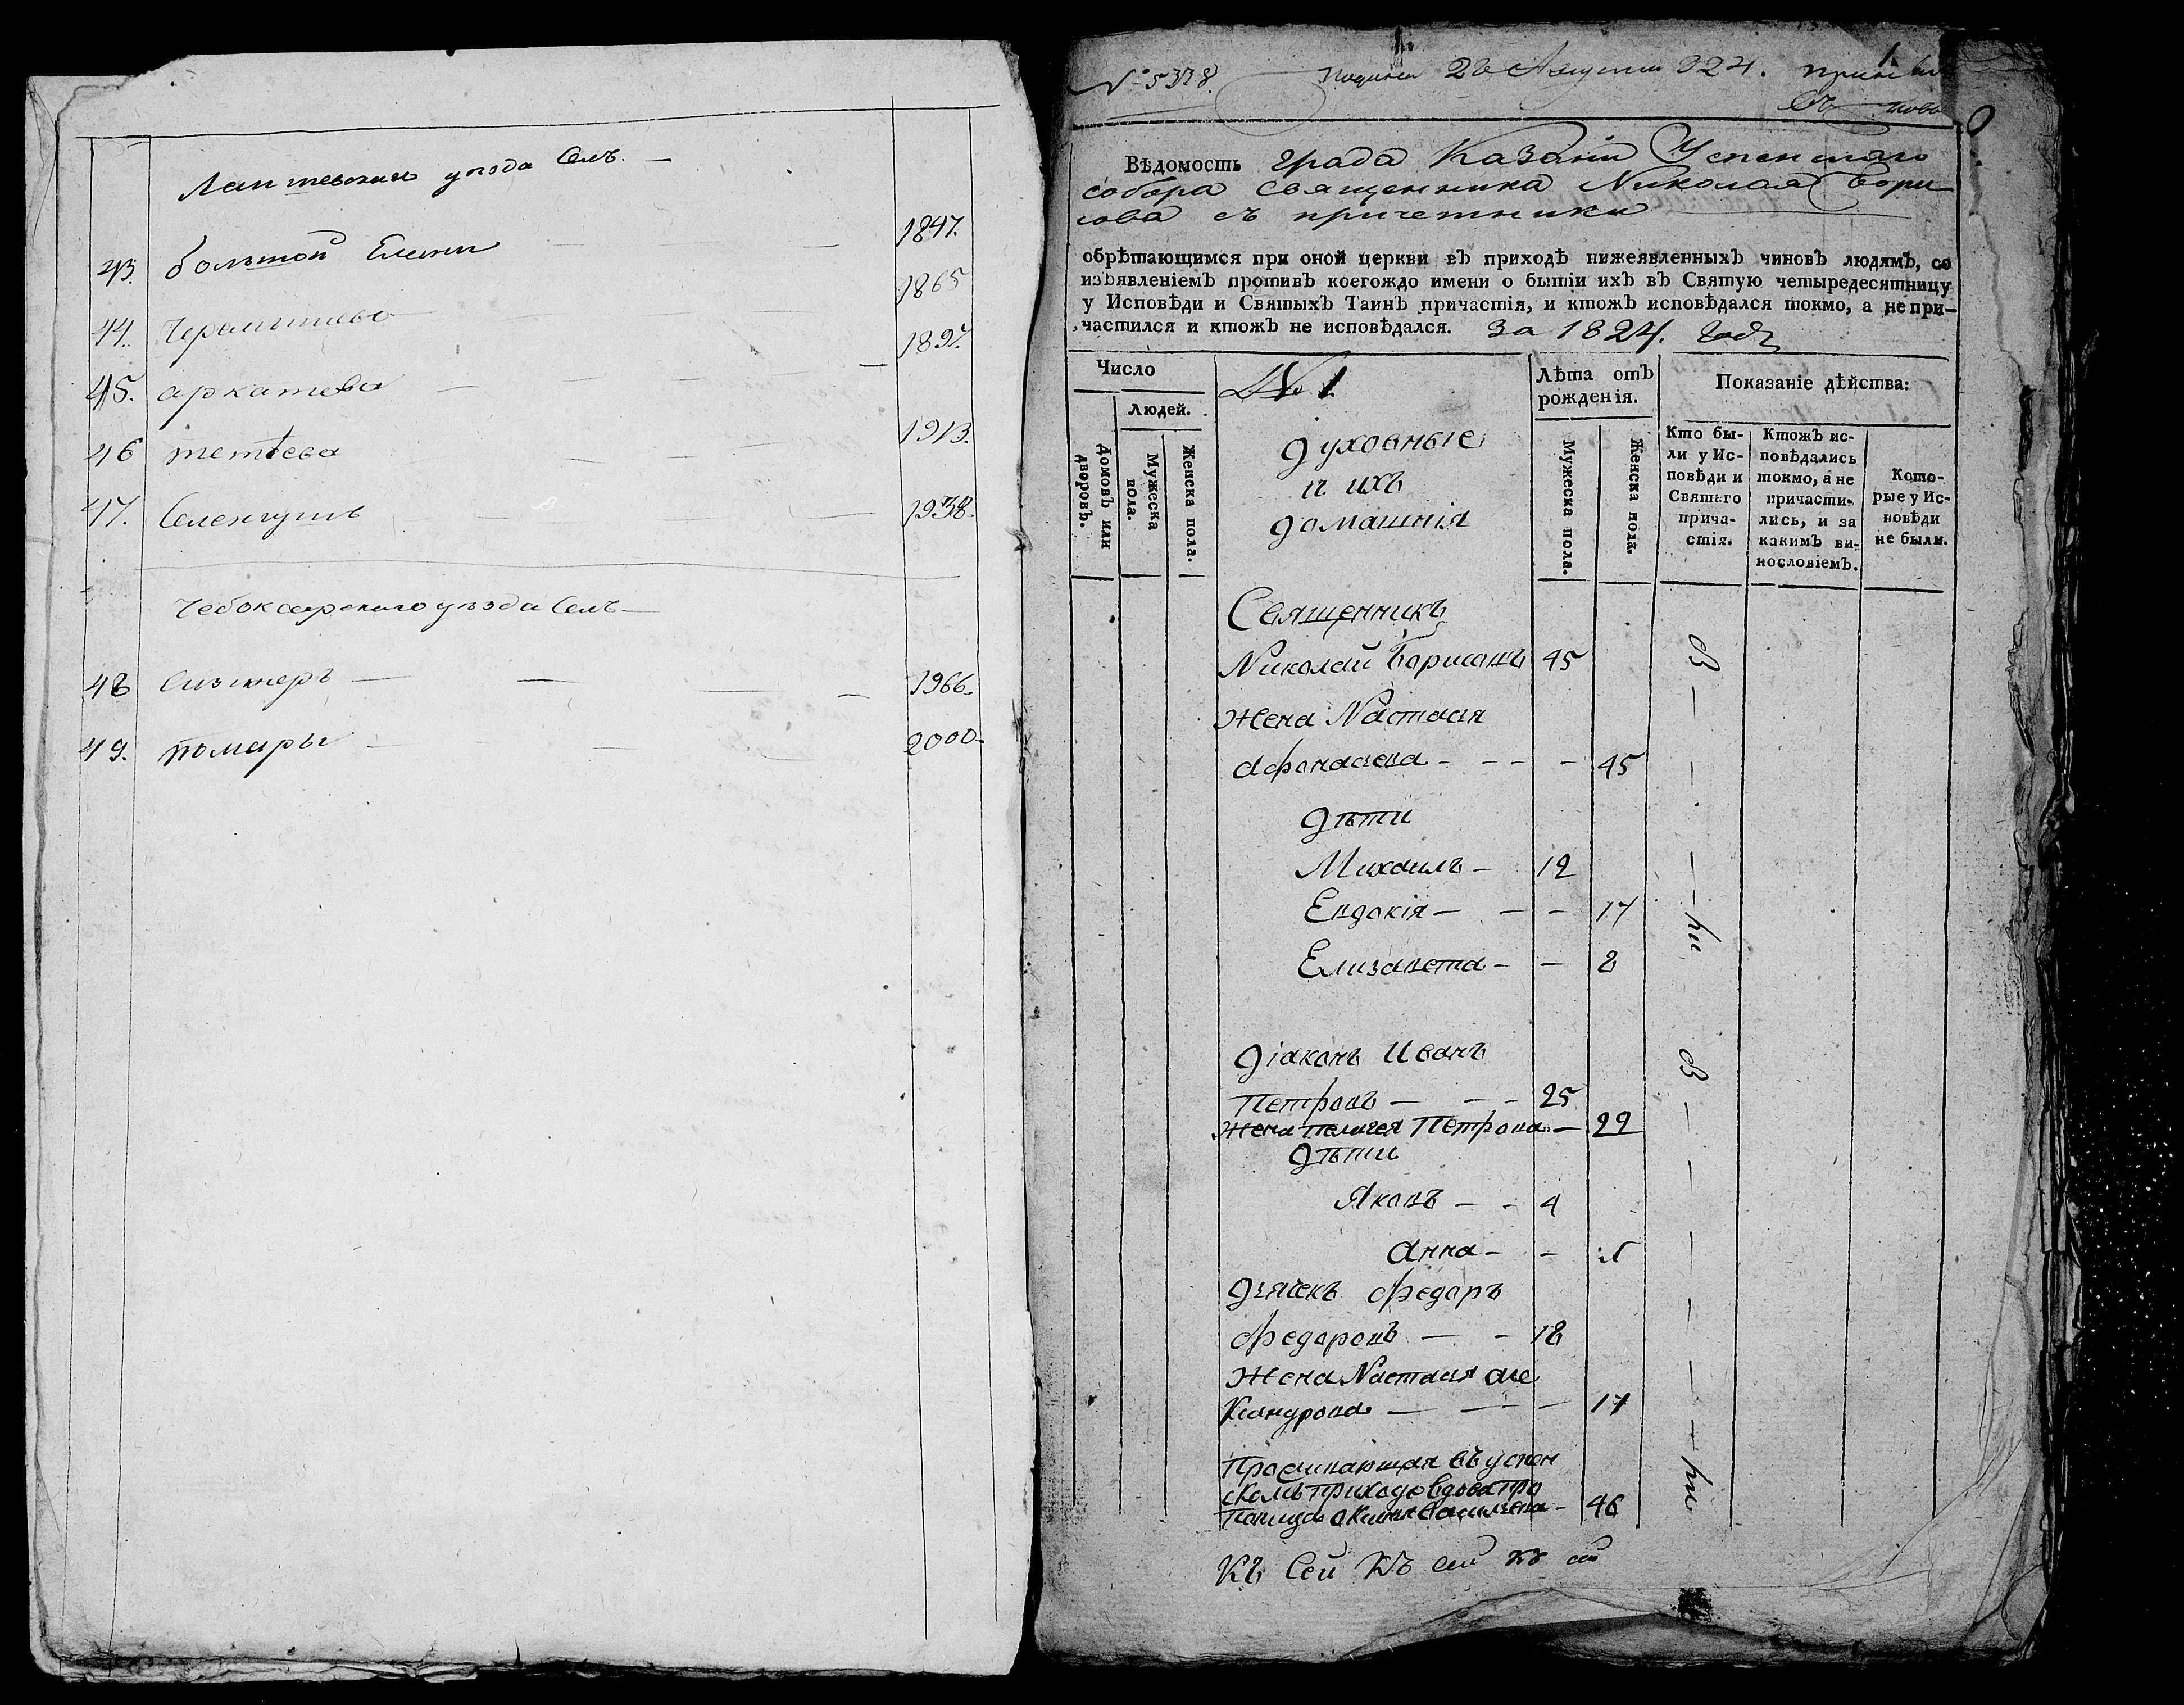 Лаишевскаго уѣзда Селъ. —
43. большой Елани — 1847.
44. Чирамышева — 1865
45. аркатова — 1897.
46 тетѣева — 1913.
47. Селенгушъ — 1938.
Чебоксарскаго уѣзда Селъ —
48 Сизьмеръ — 1966.
49. помары — 2000.
№ 5378. Августа 824.
1.
Вѣдомость града Казани Успенскаго
собора священника Николая Бори
сова съ причетники
обрѣтающимся при оной церкви въ приходѣ нижеявленныхъ чиновъ людямъ, со
изъявленіемъ противъ коегождо имени о бытіи ихъ въ Святую четыредесятницу
у Исповѣди и Святыхъ Таинъ причастія, и ктожъ исповѣдался токмо, а не при-
частился и ктожъ не исповѣдался. За 1824. Годъ
Число
Людей.
Домовъ или дворовъ.
Мужеска пола.
Женска пола.
№ 1
духовные
и ихъ
домашнія
Лѣта отъ
рожденія.
Мужеска пола.
Женска пола.
Показаніе дѣйства:
Кто бы-
ли у Ис-
повѣди и
Святаго
прича-
стія.
Ктожъ ис-
повѣдались
токмо, а не
причасти-
лись, и за
какимъ ви-
нословіемъ.
Кото-
рые у Ис-
повѣди
не были.
Священникъ
Николай Борисовъ 45
Жена Настасья
Афонасьева - - - - 45
дѣти
Михаилъ - 12
Евдокія - - - 17
Елизавета - - 8
діаконъ Иванъ
Петровъ - - - 25
Жена Пелагея Петрова - 22
дѣти
Яковъ - - 4
Анна - - 1
дьячекъ Федоръ
Федоровъ - - 18
Жена Настасья Але
ксандрова - - - 17
Проживающая въ успен
скомъ приходе вдова про
попица Васильева - 46
Къ Сей къ сей къ сей